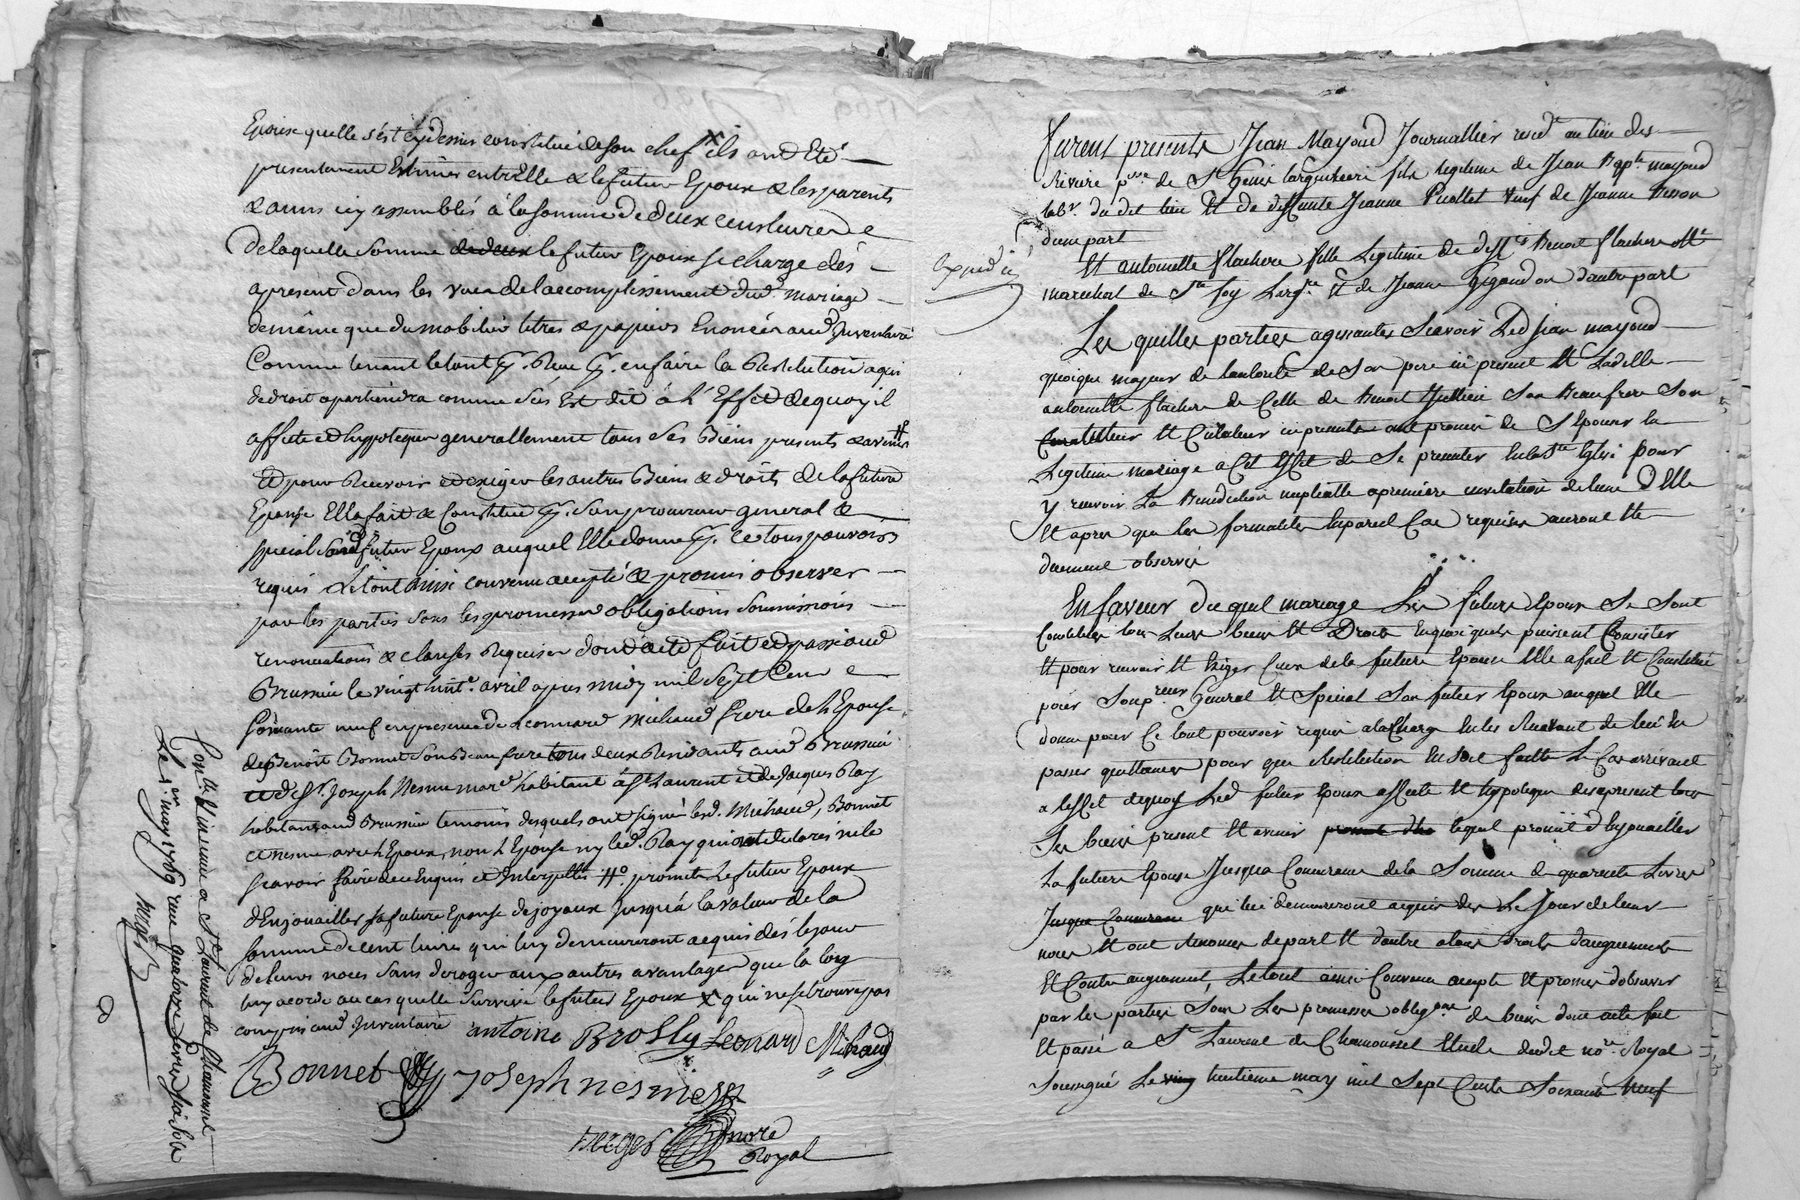 Epouse quelle s'est cydessus constitué de son chef x ils ont Eté
presentement Estimés entr'Elle & le futur Epoux & les parents
& amis icy assemblés à la somme de deux cens livres
de laquelle somme de deux le futur Epoux se charge dés
apresent dans les vues de l'accomplissement dud. mariage
de même que du mobilier titres & papiers Enoncés aud. Inventaire
Comme tenant le tout pour en faire la Restitution a qui
de droit apartiendra comme sus Est dit à l'Effet de quoy il
affecte et hypoteque generallement tous ses Biens presents & avenirs
Et pour Recevoir et exiger les autres Biens & droits de la future
Epouse Elle fait & Constitue son procureur general &
special led. futur Epoux auquel Elle donne tous pouvoirs
requis Le tout ainsi convenu accepté & promis observer
par les parties sous les promesses obligations soumissions
renonciations & clauses Requises dont acte fait et passé aud.
Brussieu le vingt huit avril apres midy mil Sept Cent
soixante neuf en presence de Leonnard Michaud frere de l'Epouse
de Benoit Bonnet son Beaufrere tous deux Residants aud. Brussieu
et de Sr. Joseph Nesme mard. habitant à St Laurent et de Jaques Ray
habitant aud. Brussieu temoins desquels ont signé lesd. Michaud, Bonnet
et nesme avec l'Epoux, non l'Epouse ny led. Ray qui ont declaré ne le
scavoir faire de ce Enquis et Interpellés promet le futur Epoux
d'Enjouailler sa future Epouse de joyaux jusqu'à la valeur de la
somme de cent livres qui luy demeureront acquis dés le jour
de leurs noces sans deroger aux autres avantages que la loy
luy acorde au cas quelle survive le futur Epoux x qui ne se trouve pas
compris aud. Inventaire antoine Brossy Leonard Michaud
Bonnet joseph nesme
nore
Royal
a St Laurent de Chamousset
Le 1er may 1769 reçu quatorze
expedié
Furent presents Jean Mayoud Journallier resid. au lieu des
Riviere psse de St Genis largentiere fils legitime de Jean Bapte mayoud
labr. du dit lieu Et de deffunte Jeanne Veuf de Jeanne
d'une part
Et antoinette flachere fille Legitime de deff. Benoit flachere Me
marechal de Ste foy Largre Et de Jeanne d'autre part
Les quelles parties agissantes Scavoir Led Jean mayoud
quoique majeur de lautorité de Son pere ici present Et Ladite
antoinette flachere de Celle de Benoit Son Beaufrere Son
Et Curateur ici present ont promis de S Epouser En
Legitime mariage a Cet Effet de Se presenter En la Ste Eglise pour
y recevoir La Benediction nuptialle a premiere invitation de lune d Elle
Et apres que les formalités En pareil Cas requises auront Eté
duement observés
En faveur du quel mariage Les futurs Epoux Se Sont
Constitués tous Leurs biens Et Droits En quoi quels puissent Consister
Et pour recevoir Et Exiger Ceux de la future Epouse Elle a fait Et Constitué
pour Son procureur General Et Special Son futur Epoux auquel Elle
donne pour Ce tout pouvoir requis a la Charge En les Recevant de lui En
passer quittances pour que Restitution En Soit faitte Le Cas arrivant
a l'effet dequoy Led futur Epoux affecte Et hypoteque des apresent tous
Ses biens present Et avenir lequel promet d'Enjouailler
La future Epouse Jusqua Concurence de la Somme de quarente Livres
Jusque Concurance qui lui demeureront acquis des Le Jour de leurs
noces Et ont Renoncer de part Et dautre a leurs droits daugument
Et Contre augument, Le tout ainsi Convenu accepté Et promis dobserver
par les parties Sous Les promesses obligons de biens dont acte fait
Et passé a St Laurent de Chamousset Etude dudit nore Royal
Soussigné Le huitieme may mil Sept Cents Soixante Neuf